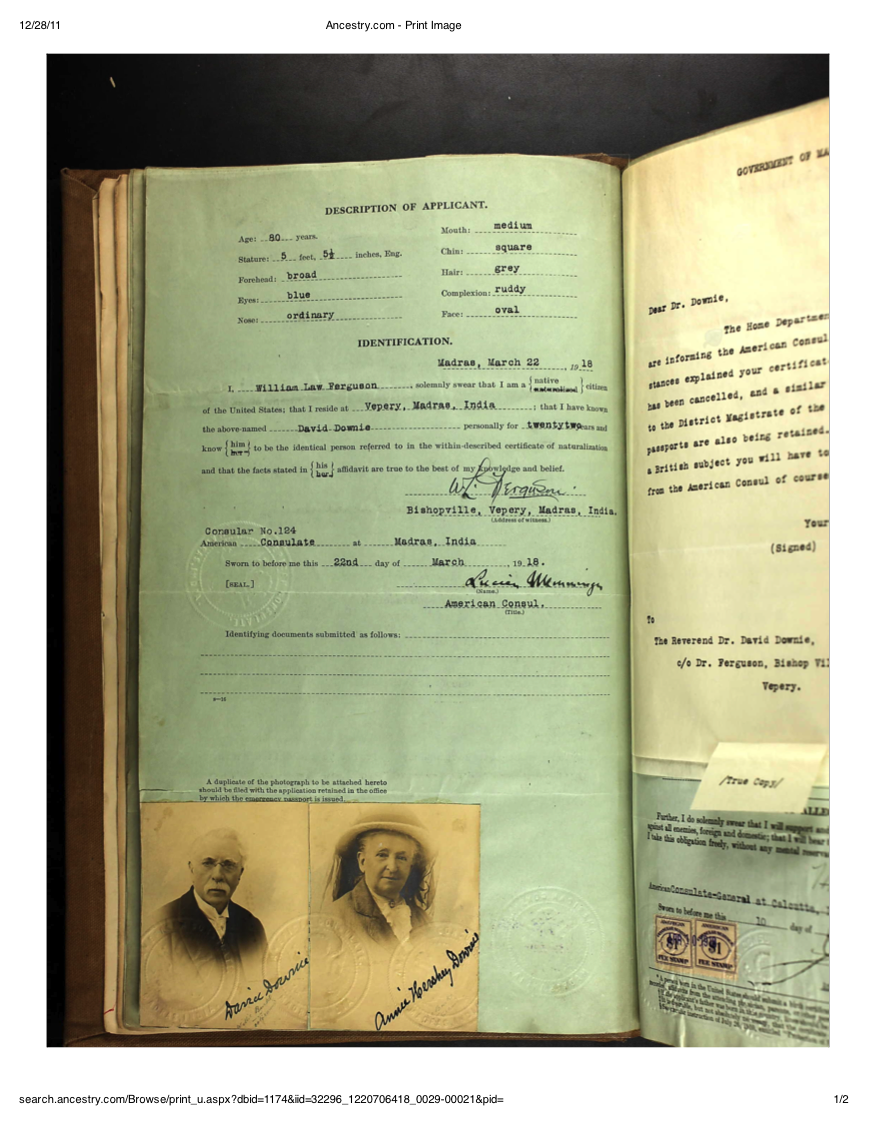 12/28/11 Ancestry.com - Print Image
DESCRIPTION OF APPLICANT.
Age: 80 years.
Stature: 5 feet, 5½ inches, Eng.
Forehead: broad
Eyes: blue
Nose: ordinary
Mouth: medium
Chin: square
Hair: grey
Complexion: ruddy
Face: oval
IDENTIFICATION.
Madras, March 22, 1918
I, William Law Ferguson, solemnly swear that I am a {native naturalized} citizen
of the United States; that I reside at Vepery, Madras, India; that I have known
the above-named David Downie personally for twentytwo years and
know {him her} to be the identical person referred to in the within-described certificate of naturalization
and that the facts stated in {his her} affidavit are true to the best of my knowledge and belief.
W. L. Ferguson.
Bishopville, Vepery, Madras, India.
(Address of witness.)
Consular No.124
American Consulate at Madras, India
Sworn to before me this 22nd day of March, 1918.
[SEAL.]
Lucien Memminger
(Name.)
American Consul.
(Title.)
Identifying documents submitted as follows:
A duplicate of the photograph to be attached hereto
should be filed with the application retained in the office
by which the emergency passport is issued.
David Downie
Annie Hershey Downie
GOVERNMENT OF MA
Dear Dr. Downie,
The Home Departmen
are informing the American Consul
stances explained your certificat
has been cancelled, and a similar
to the District Magistrate of the
passports are also being retained.
a British subject you will have to
from the American Consul of course
Your
(Signed)
To
The Reverend Dr. David Downie,
c/o Dr. Ferguson, Bishop Vil
Vepery.
/True Copy/
ALLE
Further, I do solemnly swear that I will support and
against all enemies, foreign and domestic; that I will bear
I take this obligation freely, without any mental reserva
American Consulate-General at Calcutta,
Sworn to before me this 10 day of
$1 $1
FEE STAMP FEE STAMP
search.ancestry.com/Browse/print_u.aspx?dbid=1174&iid=32296_1220706418_0029-00021&pid= 1/2